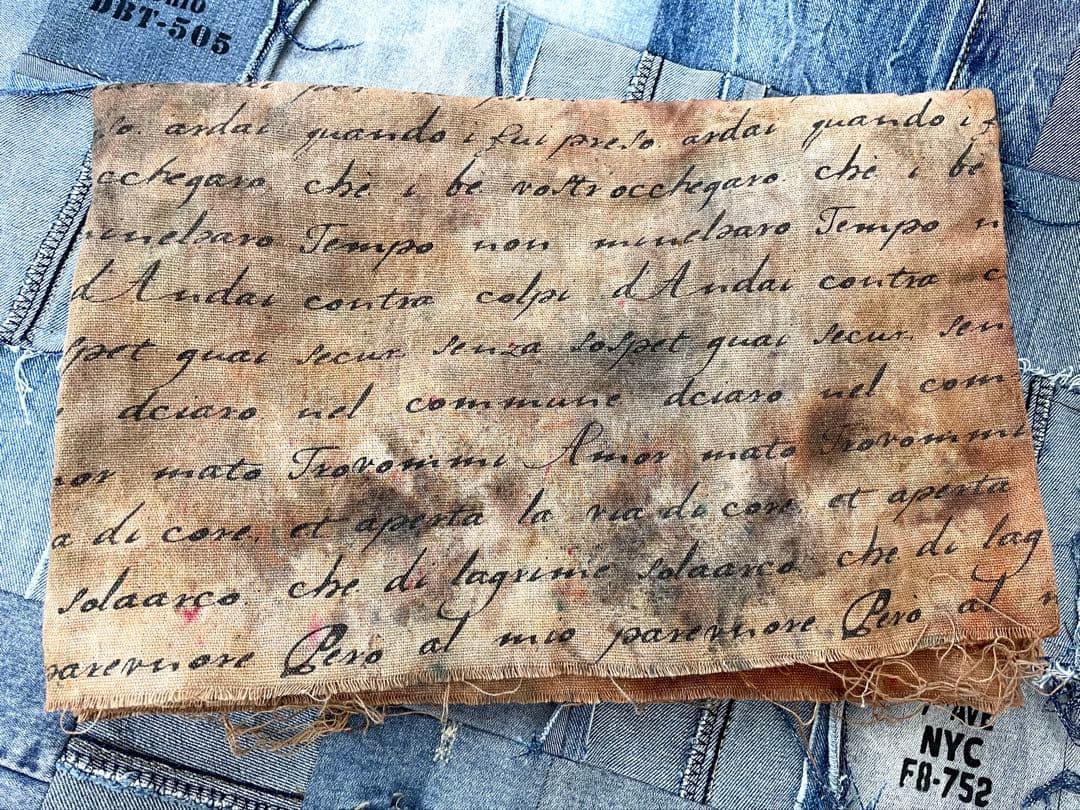 RIO
DBT-505
so. ardai quando i fui preso. ardai quando i f
occhegaro che i be vostriocchegaro che i be
munelsaro Tempo non munelsaro Tempo n
d'Andai contra colpi d'Andai contra c
spet guai secur. senza sospet guai secur. sen
dciaro nel commune dciaro nel com
mor mato Trovommi Amor mato Trovommi
a di core. et aperta la via di core. et aperta
solaarco. che di lagrime solaarco. che di lag
parervuore Pero al mio parervuore Pero al m
7 AVE
NYC
F8-752